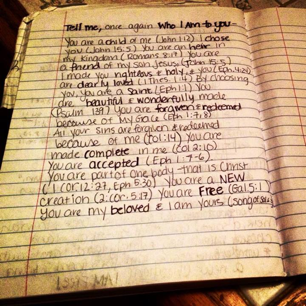 Tell me, once again Who I am to you -
You are a child of me (John 1:12) I chose
you (John 15:5) You are an heir in
my Kingdom (Romans 8:17) You are
a friend of my Son Jesus (John 15:5)
I made you righteous & holy, & you (Eph 4:24)
are dearly loved (1 Thes. 1:4) By choosing
you, you are a Saint (Eph 1:1) You
are beautiful & wonderfully made
(Psalm 139) You are forgiven & redeemed
because of my Grace (Eph 1:7,8)
All your sins are forgiven & redeemed
because of me (Col 1:14) You are
made complete in me (Col 2:10)
You are accepted (Eph 1:7-6)
You are part of one body - that is Christ
(1 Cor 12:27, Eph 5:30) You are a NEW
creation (2 Cor. 5:17) You are Free (Gal 5:1)
You are my beloved & I am yours (Song of